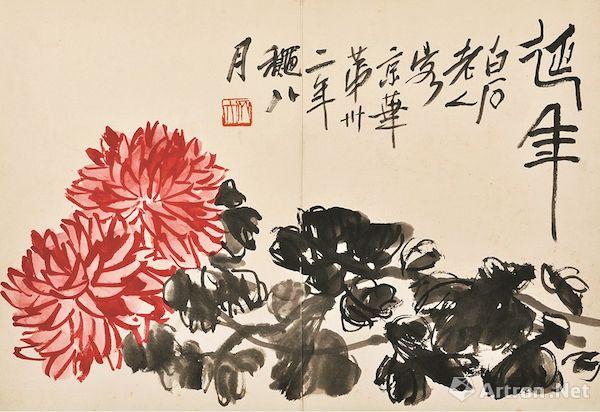 延年
白石
老人
客
京華
第卅
二年
穐八
月
Artron.Net